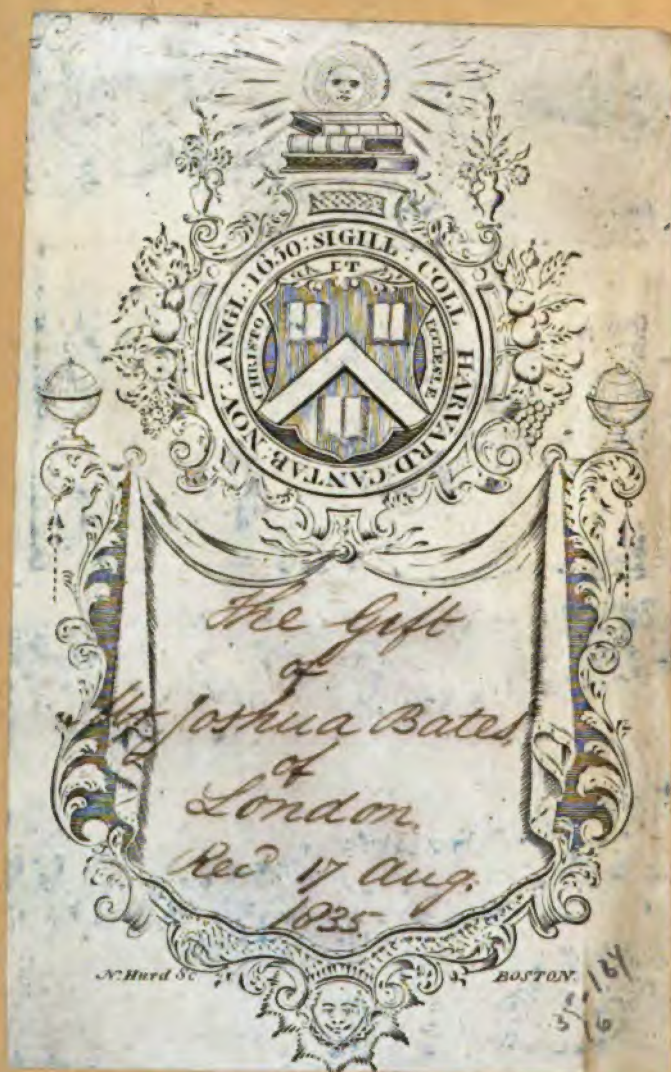 SIGILL : COLL HARVARD · CANTAB : NOV : ANGL : 1650 :
ET
CHRISTO
ECCLESIÆ
The Gift
of
Mr Joshua Bates
of
London.
Rec.d 17 Aug.
1835
N. Hurd Sc.
BOSTON.